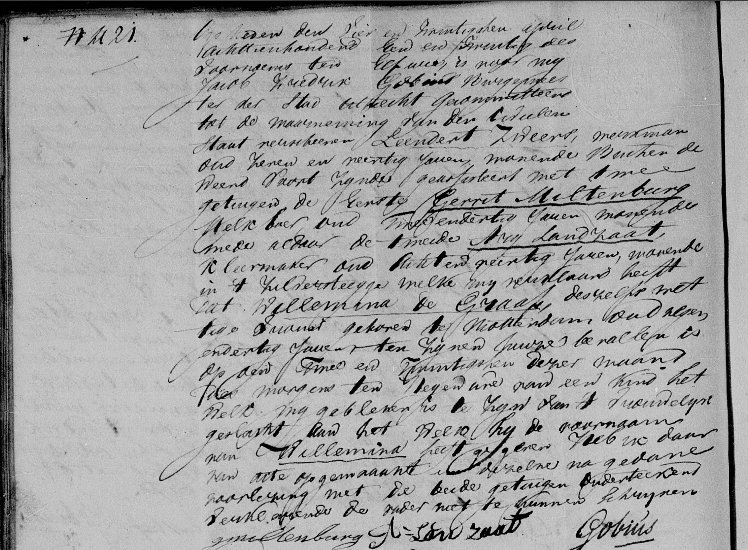 N 421.
Op heden den Vier en Twintigsten april
achttienhonderd Een en Twintig des
voormiddags ten Elf uure, is voor my
Jacob Fredrik Gobius Burgemees
ter der Stad Utrecht Gecommitteerd
tot de waarneming van den Civielen
Staat verscheenen Leendert Zweers, werkman
oud Zeven en veertig Jaaren, wonende Buiten de
Weerd Poort Zynde geassisteert met twee
getuigen de Eerste Gerrit Miltenburg
Melkboer oud Twee endertig Jaaren wonende
mede aldaar de tweede Arie Landzaat
Kleermaker oud Acht en veertig Jaaren, wonende
in 't Zilversteegje welke my verklaard heeft
dat Willemina de Graaf, deszelfs wet
tige vrouw geboren te Rotterdam oud
endertig Jaaren ten Zynen huize bevallen is
op den Twee en Twintigsten dezer maand
des morgens ten Negen ure van een Kind het
welk my gebleken is te Zyn van 't vrouwelyk
geslacht aan het Welk hy de voornaam
van Willemina heeft gegeven Heb ik daar
van acte opgemaakt en dezelve na gedane
voorlezing met de beide getuigen onderteekend
verklarende de vader niet te kunnen Schryven
G Miltenburg A. Landzaat Gobius